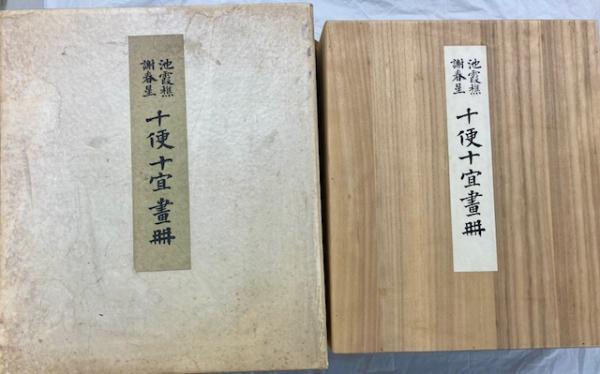 池霞樵
謝春星
十便十宜畫冊
池霞樵
謝春星
十便十宜畫冊